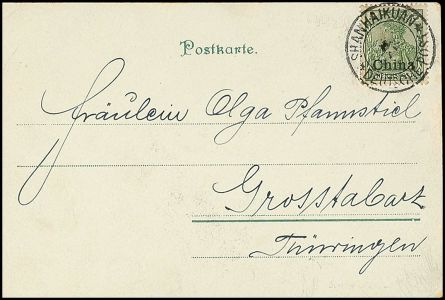 SHANHAIKUAN
DEUTSCHE POST
China
Postkarte.
Fräulein Olga Pfannstiel
Grosstabarz
Thüringen